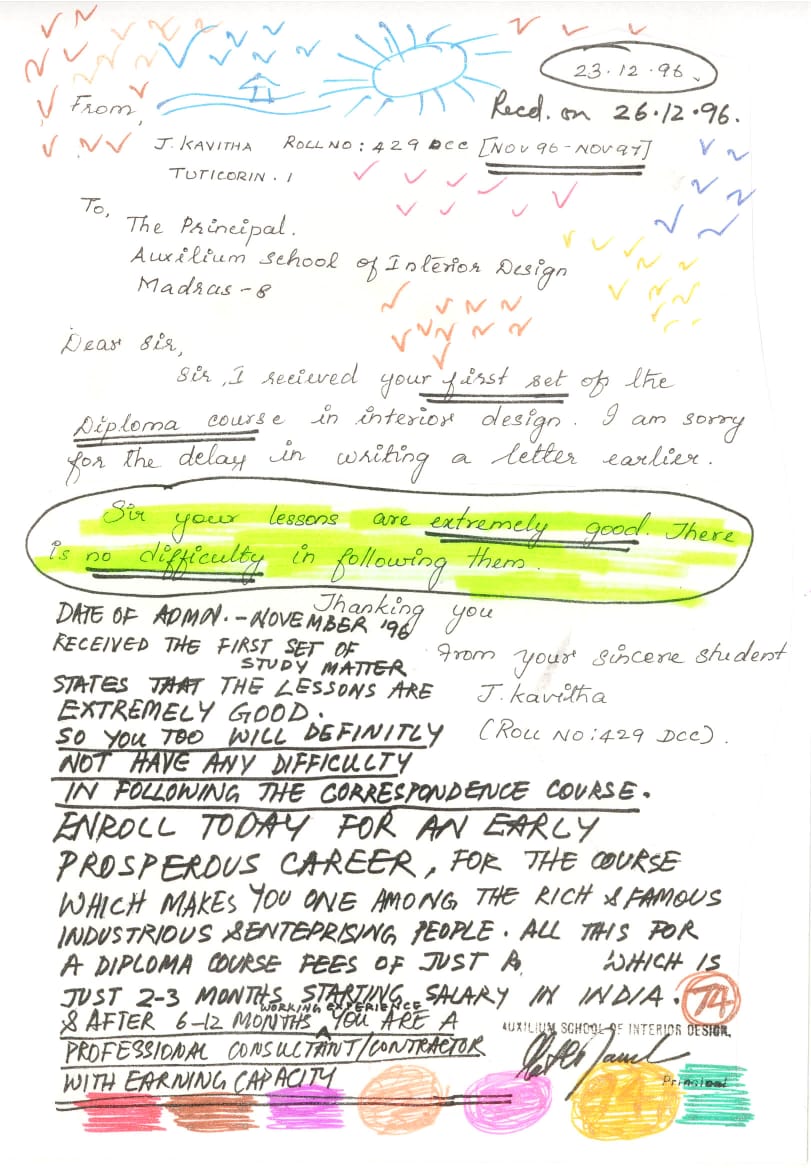 23.12.96.
Recd. on 26.12.96.
From,
J. KAVITHA ROLL NO: 429 DCC [NOV 96 - NOV 97]
TUTICORIN. 1
To,
The Principal.
Auxilium School of Interior Design
Madras - 8
Dear Sir,
Sir, I recieved your first set of the
Diploma course in interior design. I am sorry
for the delay in writing a letter earlier.
Sir your lessons are extremely good. There
is no difficulty in following them.
Thanking you
From your sincere student
J. Kavitha
(ROLL NO: 429 DCC).
DATE OF ADMN. - NOVEMBER '96
RECEIVED THE FIRST SET OF
STUDY MATTER
STATES THAT THE LESSONS ARE
EXTREMELY GOOD.
SO YOU TOO WILL DEFINITLY
NOT HAVE ANY DIFFICULTY
IN FOLLOWING THE CORRESPONDENCE COURSE.
ENROLL TODAY FOR AN EARLY
PROSPEROUS CAREER, FOR THE COURSE
WHICH MAKES YOU ONE AMONG THE RICH & FAMOUS
INDUSTRIOUS & ENTEPRISING PEOPLE. ALL THIS FOR
A DIPLOMA COURSE FEES OF JUST Rs WHICH IS
JUST 2-3 MONTHS STARTING SALARY IN INDIA.
74
& AFTER 6-12 MONTHS WORKING EXPERIENCE YOU ARE A
PROFESSIONAL CONSULTANT/CONTRACTOR
WITH EARNING CAPACITY
AUXILIUM SCHOOL OF INTERIOR DESIGN.
Principal
74